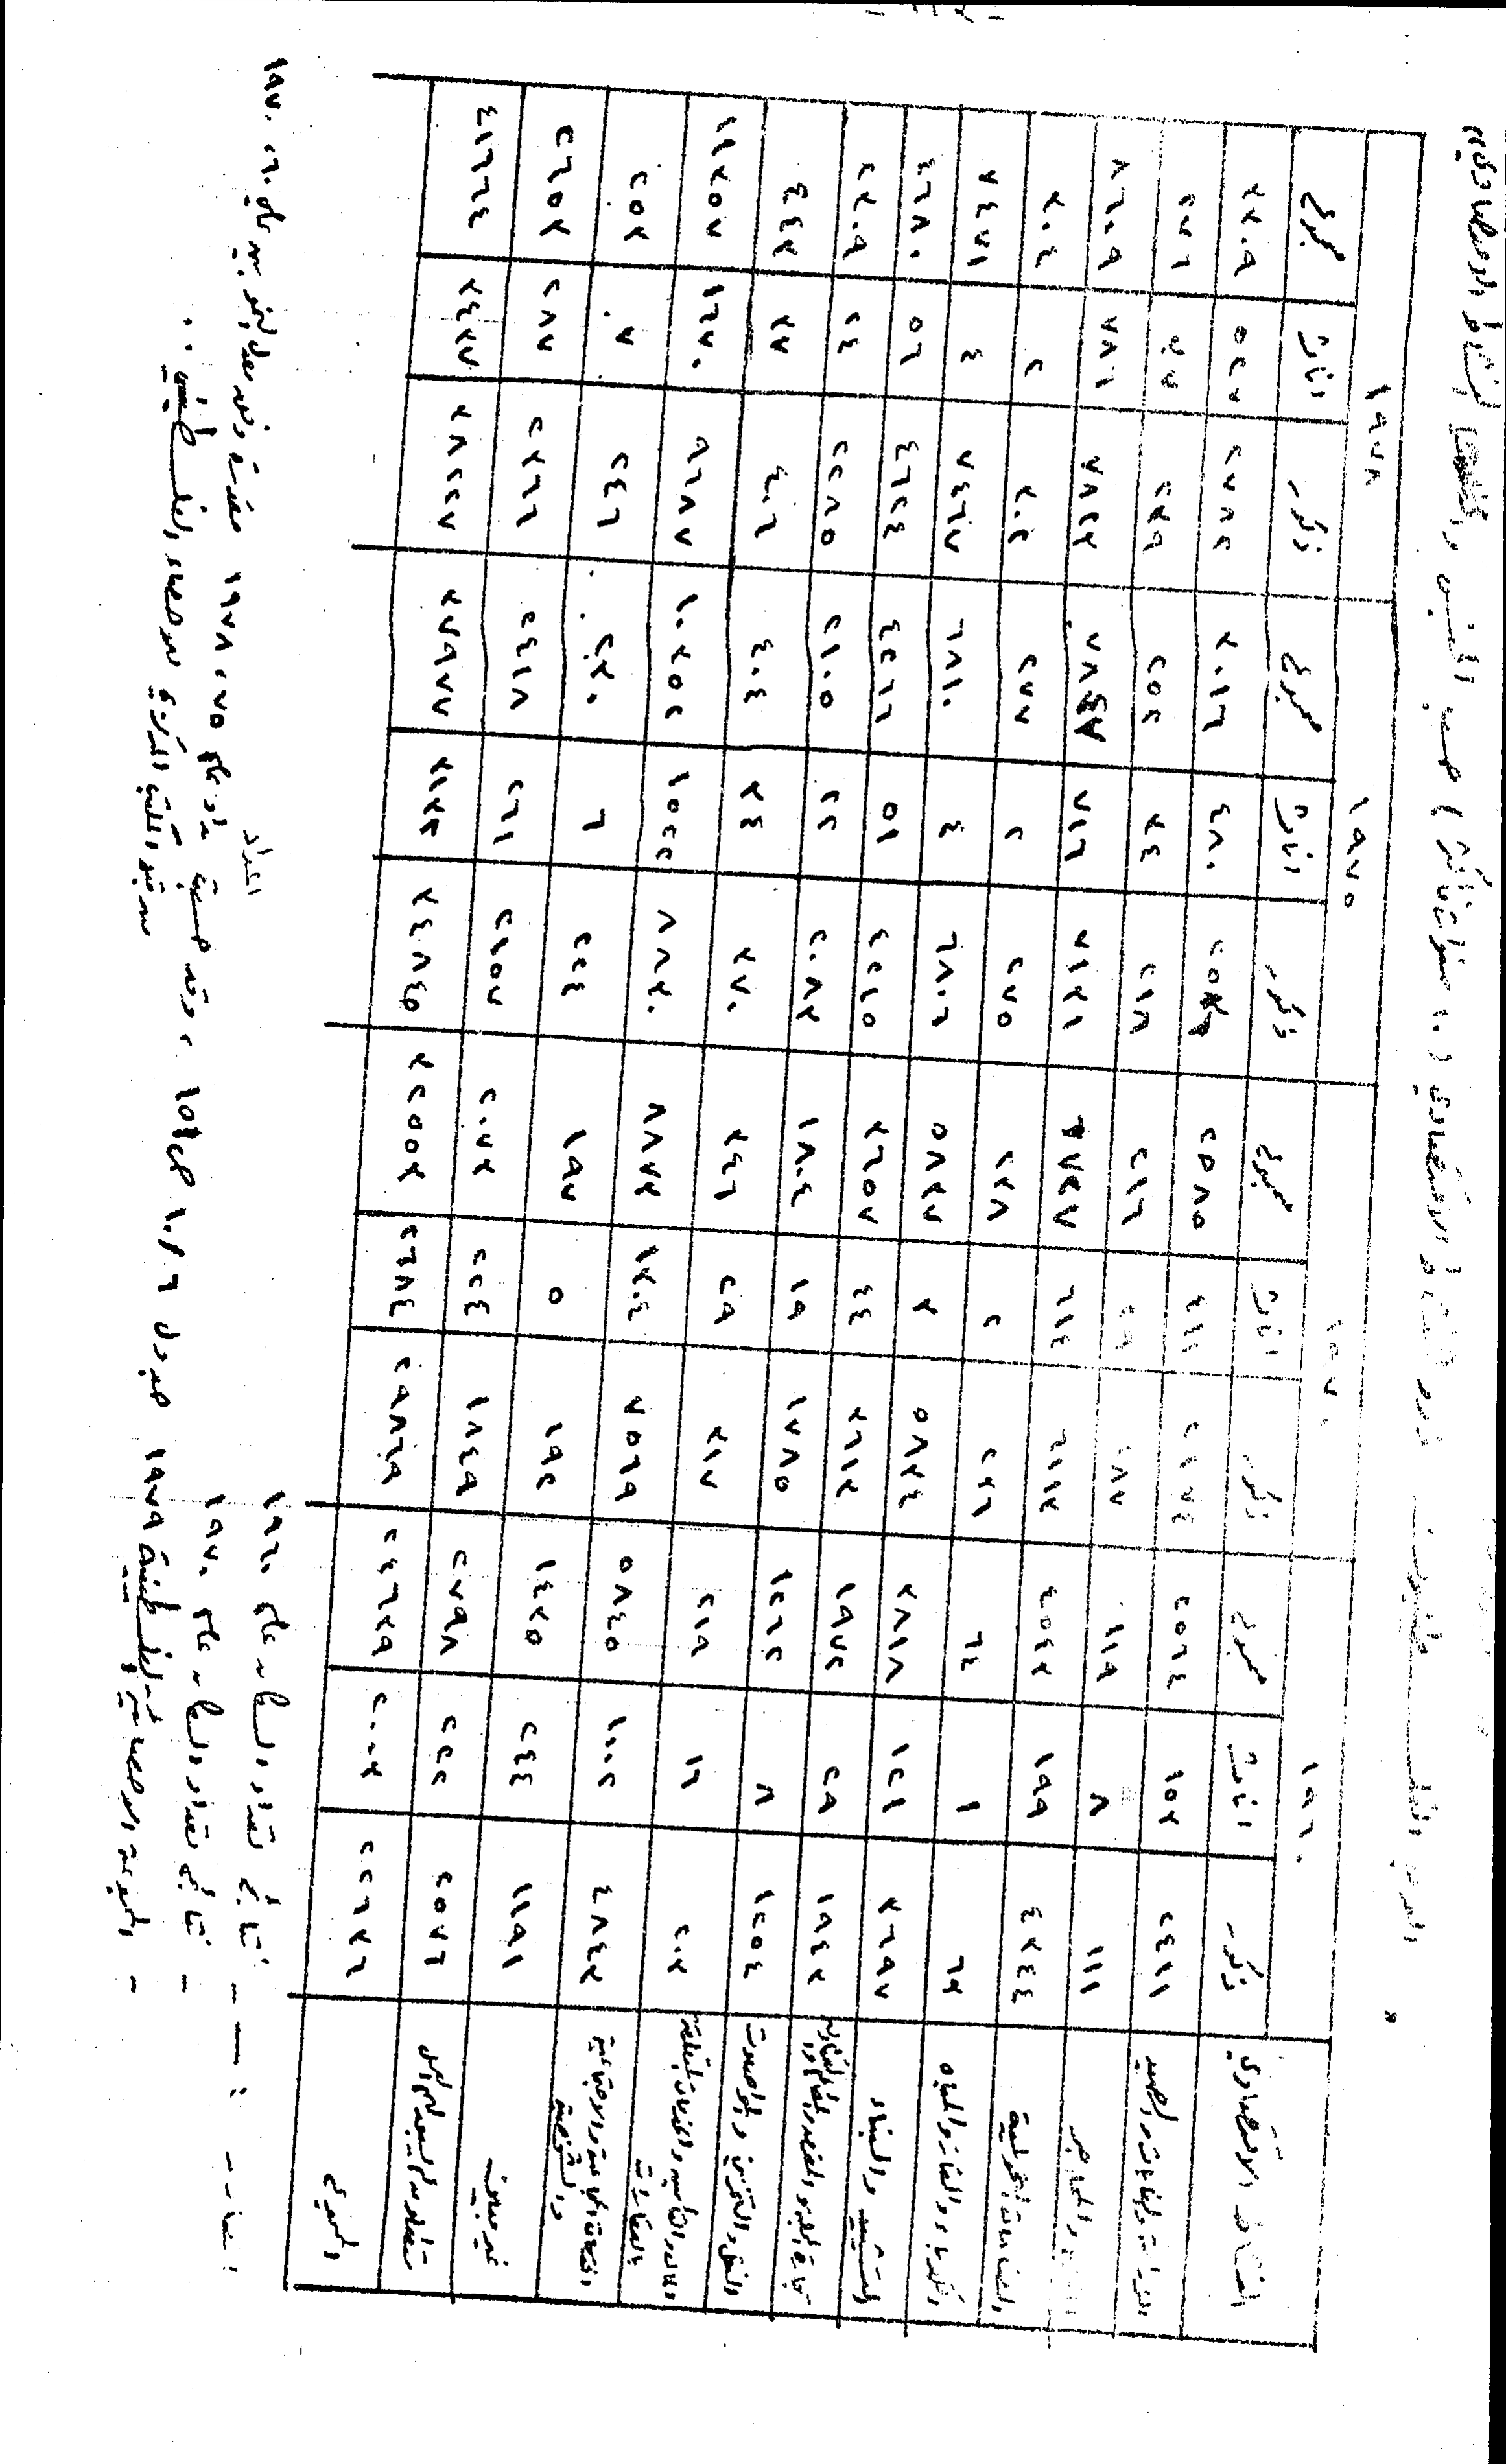 ذوو النشاط الاقتصادي (١٠ سنوات فأكثر) حسب الجنس والنشاط الاقتصادي
١٩٦٠ ١٩٧٠ ١٩٧٥ ١٩٧٨
النشاط الاقتصادي ذكور اناث مجموع ذكور اناث مجموع ذكور اناث مجموع ذكور اناث مجموع
الزراعة والغابات والصيد ٢٤١١ ١٥٣ ٢٥٦٤ ٢١٧٤ ٤١١ ٢٥٨٥ ٢٥٣٦ ٤٨٠ ٣٠١٦ ٢٧٨٢ ٥٢٧ ٣٣٠٩
والمحاجر ١١١ ٨ ١١٩ ١٨٧ ٢٩ ٢١٦ ٢١٨ ٣٤ ٢٥٢ ٢٣٩ ٣٧ ٢٧٦
الصناعات التحويلية ٤٣٤٤ ١٩٩ ٤٥٤٣ ٦١١٣ ٦١٤ ٦٧٢٧ ٧١٣١ ٧١٦ ٧٨٤٧ ٧٨٢٣ ٧٨٦ ٨٦٠٩
الكهرباء والغاز والمياه ٦٣ ١ ٦٤ ٢٣٦ ٢ ٢٣٨ ٢٧٥ ٢ ٢٧٧ ٣٠٢ ٢ ٣٠٤
التشييد والبناء ٣٦٩٧ ١٢١ ٣٨١٨ ٥٨٣٤ ٣ ٥٨٣٧ ٦٨٠٦ ٤ ٦٨١٠ ٧٤٦٧ ٤ ٧٤٧١
تجارة الجملة والمفرد والمطاعم والفنادق ١٩٤٣ ٢٩ ١٩٧٢ ٣٦١٣ ٤٤ ٣٦٥٧ ٤٢١٥ ٥١ ٤٢٦٦ ٤٦٢٤ ٥٦ ٤٦٨٠
النقل والتخزين والمواصلات ١٢٥٤ ٨ ١٢٦٢ ١٧٨٥ ١٩ ١٨٠٤ ٢٠٨٣ ٢٢ ٢١٠٥ ٢٢٨٥ ٢٤ ٢٣٠٩
المال والتأمين والخدمات المتعلقة بالعقارات ٢٠٣ ١٦ ٢١٩ ٣١٧ ٢٩ ٣٤٦ ٣٧٠ ٣٤ ٤٠٤ ٤٠٦ ٣٧ ٤٤٣
الخدمات الجماعية والاجتماعية والشخصية ٤٨٤٣ ١٠٠٢ ٥٨٤٥ ٧٥٦٩ ١٣٠٤ ٨٨٧٣ ٨٨٣٠ ١٥٢٢ ١٠٣٥٢ ٩٦٨٧ ١٦٧٠ ١١٣٥٧
غير مبين ١١٩١ ٢٤٤ ١٤٣٥ ١٩٢ ٥ ١٩٧ ٢٢٤ ٦ ٢٣٠ ٢٤٦ ٧ ٢٥٣
متعطلون لم يسبق لهم العمل ٢٥٧٦ ٢٢٢ ٢٧٩٨ ١٨٤٩ ٢٢٤ ٢٠٧٣ ٢١٥٧ ٢٦١ ٢٤١٨ ٢٣٦٦ ٢٨٧ ٢٦٥٣
المجموع ٢٢٦٣٦ ٢٠٠٣ ٢٤٦٣٩ ٢٩٨٦٩ ٢٦٨٤ ٣٢٥٥٣ ٣٤٨٤٥ ٣١٣٢ ٣٧٩٧٧ ٣٨٢٢٧ ٣٤٣٧ ٤١٦٦٤
- نتائج تعداد السكان عام ١٩٦٠
- نتائج تعداد السكان عام ١٩٧٠
- المجموعة الاحصائية الفلسطينية ١٩٧٩ جدول ١٠٦ ص ١٥١ ، وقد حسبت اعداد عام ١٩٧٨،٧٥ مقدرة وفق معدل النمو بين عامي ١٩٧٠،٦٠
من قبل المكتب المركزي للاحصاء الفلسطيني .